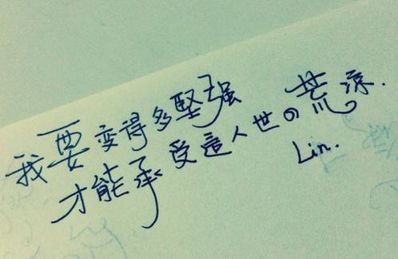 我要变得多堅强
才能承受這人世の荒凉.
Lin.